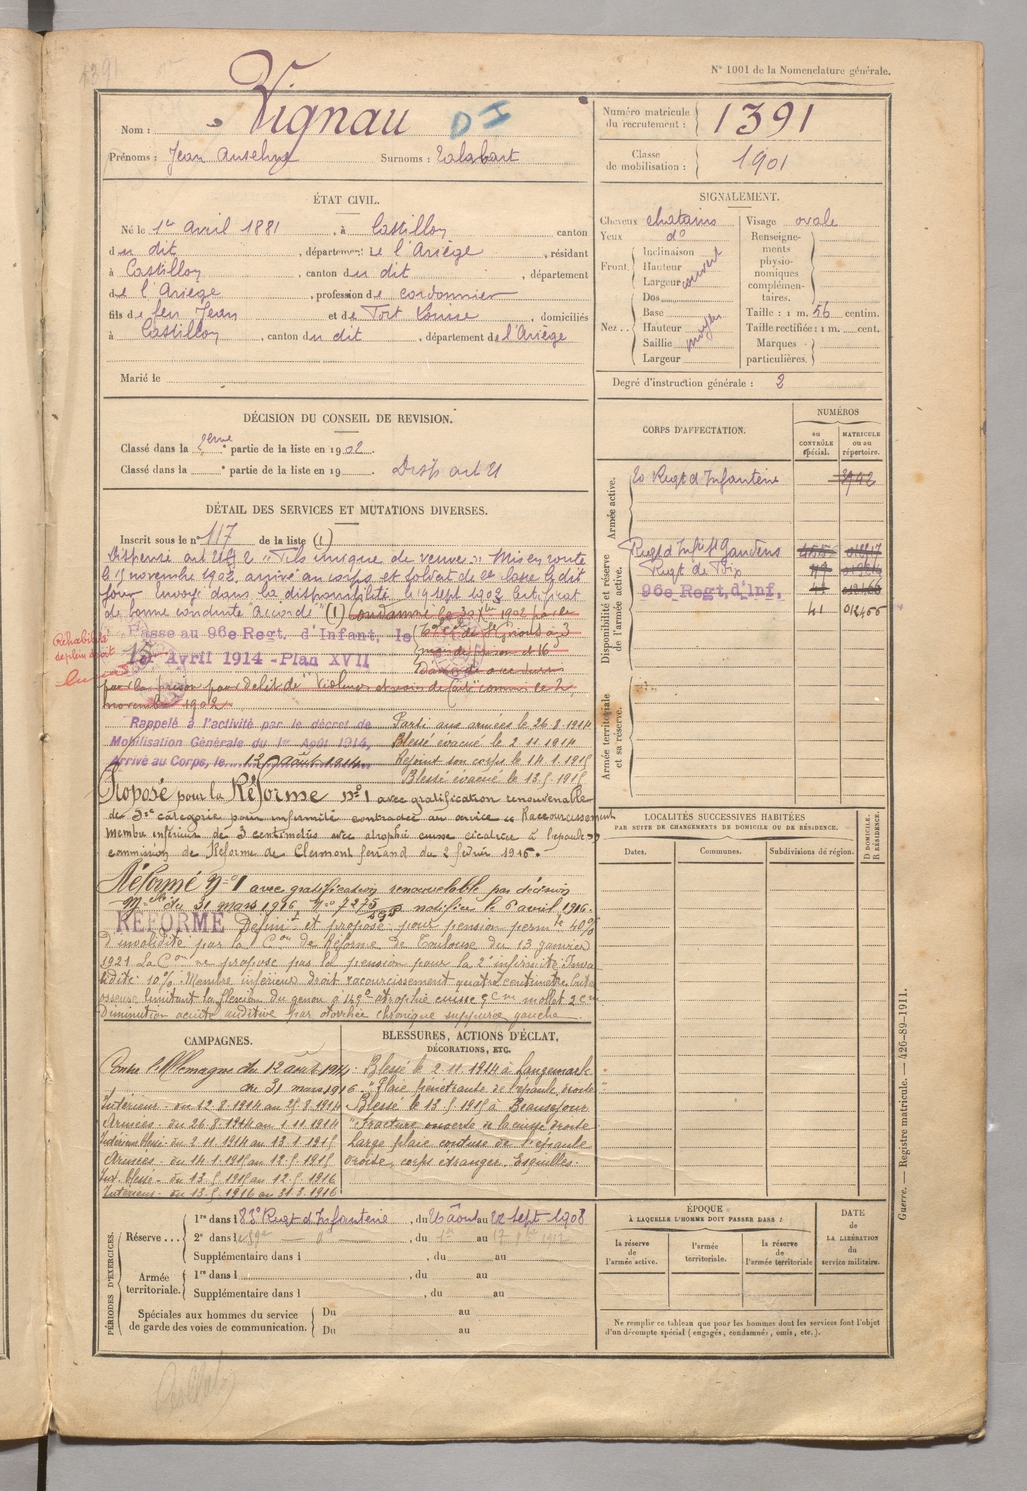 N° 1001 de la Nomenclature générale.
Nom : Vignau
D I
Prénoms : Jean Anselme Surnoms : Talabart
Numéro matricule du recrutement : 1391
Classe de mobilisation : 1901
ÉTAT CIVIL.
Né le 1er avril 1881, à Castillon canton
du dit, département de l'Ariège, résidant
à Castillon, canton du dit, département
de l'Ariège, profession de cordonnier
fils de feu Jean et de Tort Louise, domiciliés
à Castillon, canton du dit, département de l'Ariège
Marié le
SIGNALEMENT.
Cheveux chatains
Yeux d°
Front. Inclinaison
Hauteur
Largeur couvert
Nez.. Dos
Base
Hauteur moyen
Saillie
Largeur
Visage ovale
Renseignements physionomiques complémentaires.
Taille : 1 m. 56 centim.
Taille rectifiée : 1 m. cent.
Marques particulières.
Degré d'instruction générale : 2
DÉCISION DU CONSEIL DE REVISION.
Classé dans la 2eme partie de la liste en 1902.
Classé dans la e partie de la liste en 19 . Disp art 21
CORPS D'AFFECTATION.
NUMÉROS
au CONTRÔLE spécial.
MATRICULE ou au répertoire.
Armée active.
Regt d'Infanterie
Disponibilité et réserve de l'armée active.
Regt d'Infie St Gaudens
Regt de Foix
96e Regt. d'Inf.
41 012466
Armée territoriale et sa réserve.
DÉTAIL DES SERVICES ET MUTATIONS DIVERSES.
Inscrit sous le n° 117 de la liste (1)
Dispensé art 21 § 2 "Fils unique de veuve." Mis en route
le 15 novembre 1902, arrivé au corps et soldat de 2e classe le dit
jour. Envoyé dans la disponibilité le 19 sept 1903. Certificat
de bonne conduite "Accordé" (1) Condamné le 30 Xbre 1902 par le
Passé au 96e Regt. d'Infant, le
15 Avril 1914 - Plan XVII
Réhabilité de plein droit
mois de prison et 16
par la prison pour délit de "Violences et voies de faits" commis le 2
novembre 1902.
Rappelé à l'activité par le décret de
Mobilisation Générale du 1er Août 1914,
Arrivé au Corps, le 12 août 1914
Parti aux armées le 26.8.1914
Blessé évacué le 2 11 1914
Rejoint son corps le 14.1.1915
Blessé évacué le 13.5.1915
Proposé pour la Réforme n°1 avec gratification renouvenable
de 5me catégorie pour infirmité contractée au service "Raccourcissement
membre inférieur de 3 centimètres avec atrophie cuisse cicatrice à l'épaule"
commission de Réforme de Clermont ferrand du 2 février 1916.
Réformé N°1 avec gratification renouvelable par décision
Mlle du 31 mars 1916 N° 7275 notifiée le 6 avril 1916.
RÉFORMÉ Définit et proposé pour pension permte 40%
d'invalidité par la Con de Réforme de Toulouse du 13 janvier
1921 La Con ne propose pas la pension pour la 2e infirmité Inva
lidité: 10%. Membre inférieur droit raccourcissement quatre centimètres
osseuse limitant la flexion du genou à atrophie cuisse mollet 2cm
Diminution acuité auditive par otorrhée chronique suppurée gauche.
LOCALITÉS SUCCESSIVES HABITÉES
PAR SUITE DE CHANGEMENTS DE DOMICILE OU DE RÉSIDENCE.
Dates.
Communes.
Subdivisions de région.
D DOMICILE. R RÉSIDENCE.
CAMPAGNES.
Contre l'Allemagne du 12 août 1914
au 31 mars 1916
Intérieur - du 12.8.1914 au 25.8.1914
Armées - du 26.8.1914 au 1.11.1914
Intérieur blessé - du 2.11.1914 au 13.1.1915
Armées - du 14.1.1915 au 12.5.1915
Int. blessé - du 13.5.1915 au 12.5.1916
Intérieur - du 13.5.1916 au 31.3.1916
BLESSURES, ACTIONS D'ÉCLAT,
DÉCORATIONS, ETC.
Blessé le 2.11.1914 à Langemark
"Plaie pénétrante de l'épaule droite"
Blessé le 13.5.1915 à Beauséjour
"Fracture ouverte de la cuisse droite
Large plaie contuse de l'épaule
droite, corps étranger. Esquilles.
PÉRIODES D'EXERCICES.
Réserve... 1re dans le 83e Regt d'Infanterie, du 26 août au 22 Sept 1908
2e dans le 59e d°, du 1er au 17 1912
Supplémentaire dans l , du au
Armée territoriale. 1re dans l , du au
Supplémentaire dans l , du au
Spéciales aux hommes du service de garde des voies de communication. Du au
Du au
ÉPOQUE
À LAQUELLE L'HOMME DOIT PASSER DANS :
la réserve de l'armée active.
l'armée territoriale.
la réserve de l'armée territoriale
DATE de LA LIBÉRATION du service militaire.
Ne remplir ce tableau que pour les hommes dont les services font l'objet
d'un décompte spécial (engagés, condamnés, omis, etc.).
Guerre. — Registre matricule. — 426-89-1911.